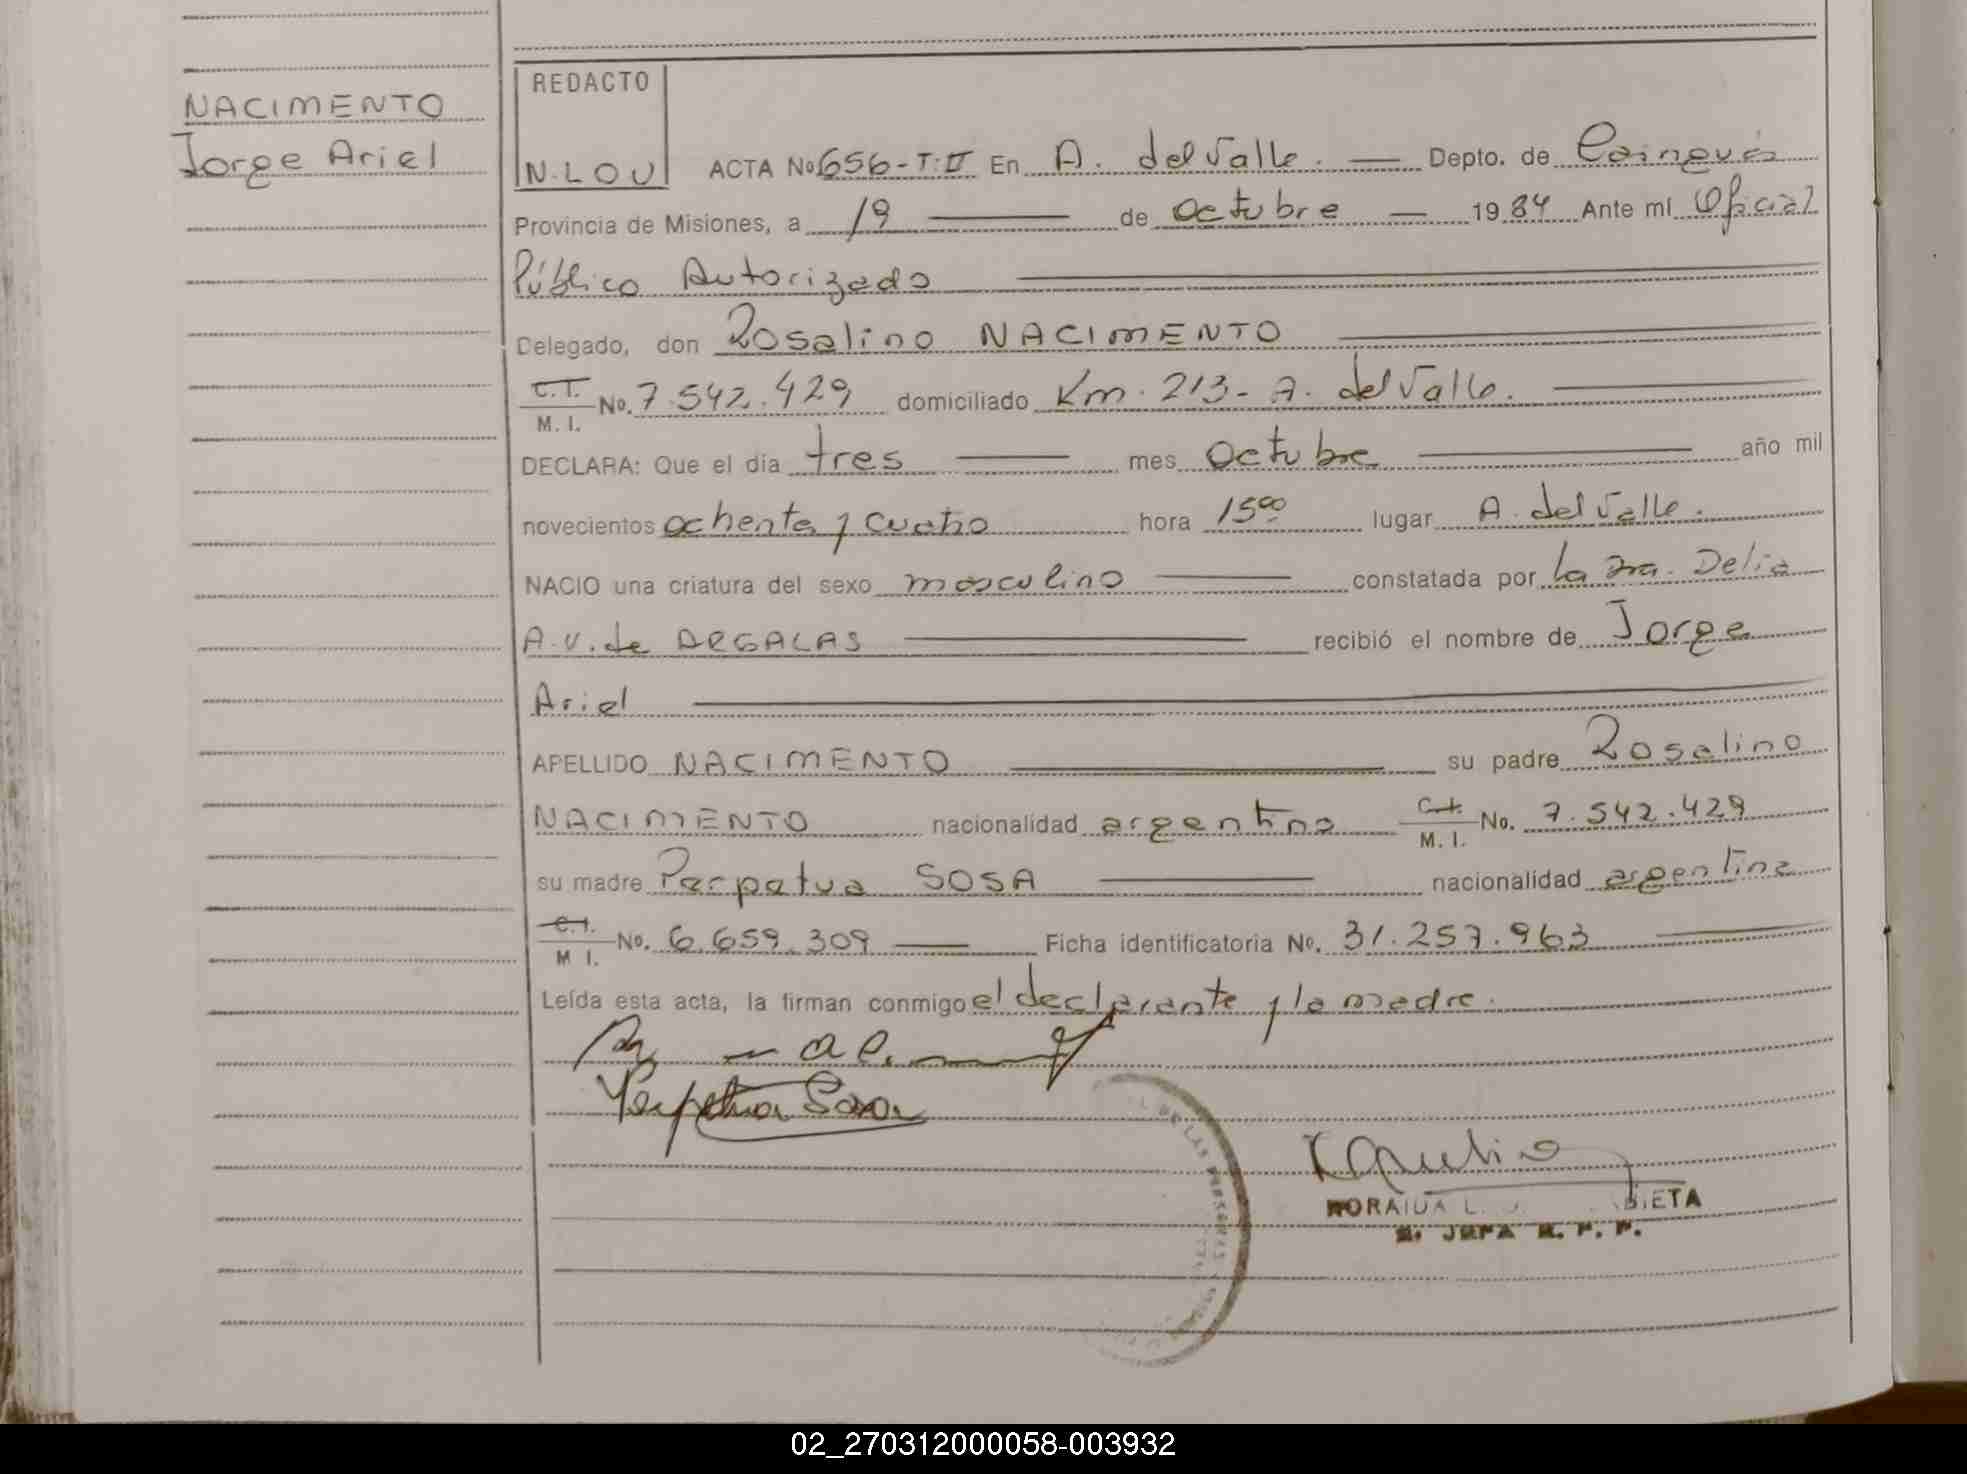 NACIMENTO
Jorge Ariel
REDACTO
N. LOU
ACTA No 656-T:II En A. del Valle. Depto. de Cainguás
Provincia de Misiones, a 19 de Octubre 1984 Ante mí Oficial
Público Autorizado
Delegado, don Rosalino NACIMENTO
C.I. M. I. No. 7.542.429 domiciliado Km. 213 - A. del Valle.
DECLARA: Que el día tres mes Octubre año mil
novecientos ochenta y cuatro hora 15 00 lugar A. del Valle.
NACIO una criatura del sexo masculino constatada por la Sra. Delia
A.V. de ARGALAS recibió el nombre de Jorge
Ariel
APELLIDO NACIMENTO su padre Rosalino
NACIMENTO nacionalidad argentino C.I. M. I. No. 7.542.429
su madre Perpetua SOSA nacionalidad argentina
C.I. M I. No. 6.659.309 Ficha identificatoria No. 31.257.963
Leída esta acta, la firman conmigo el declarante y la madre.
Perpetua Sosa
DE LAS PERSONAS
NORAIDA L. BIETA
JEFA R. P. P.
02_270312000058-003932